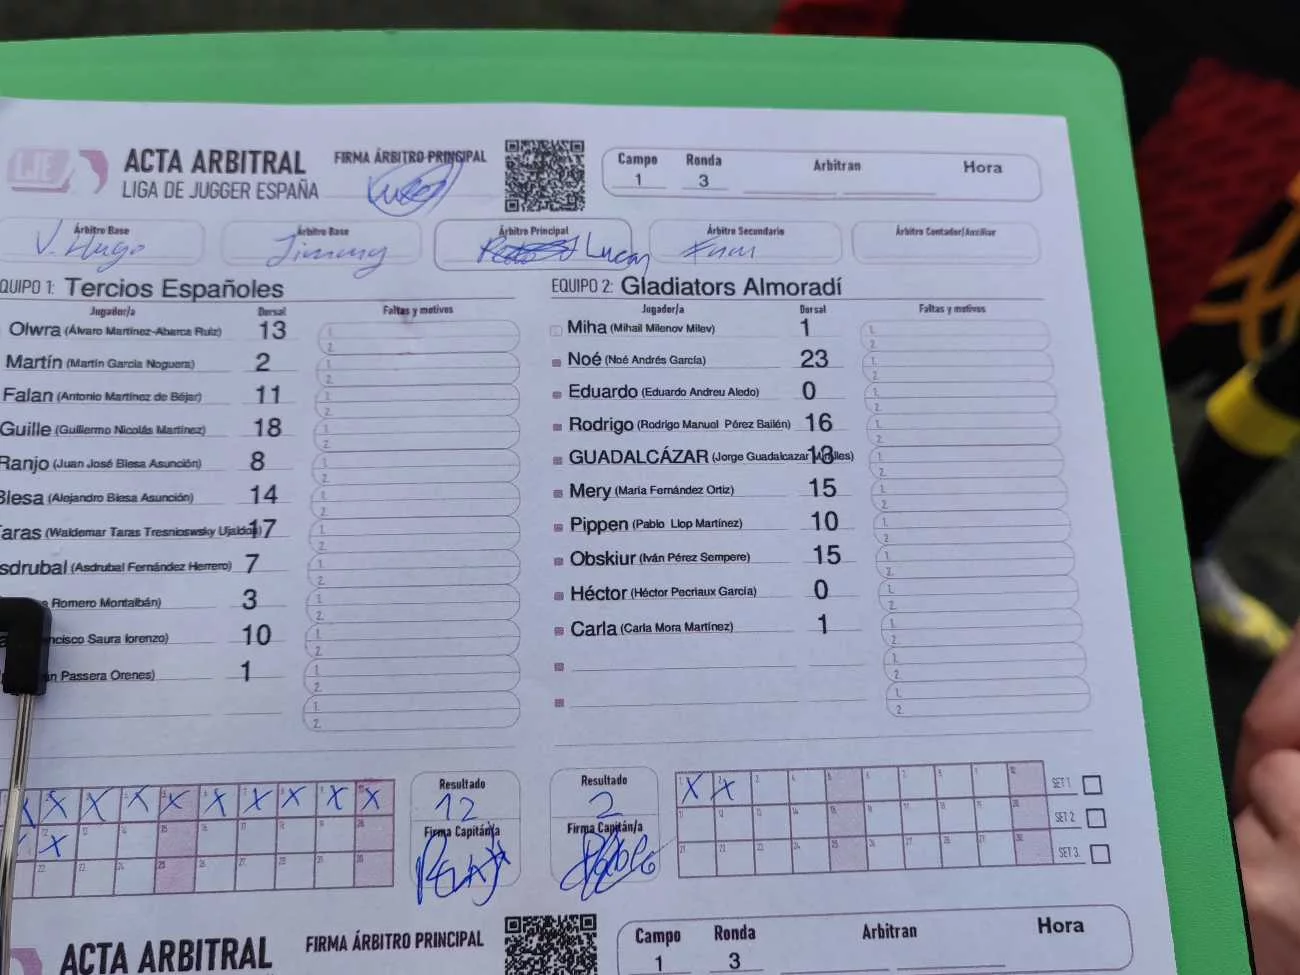 LJE
ACTA ARBITRAL
LIGA DE JUGGER ESPAÑA
FIRMA ÁRBITRO PRINCIPAL
Campo Ronda Arbitran Hora
1 3
Árbitro Base Árbitro Base Árbitro Principal Árbitro Secundario Árbitro Contador/Auxiliar
V. Hugo Jimmy Lucas
EQUIPO 1: Tercios Españoles
Jugador/a Dorsal Faltas y motivos
Olwra (Álvaro Martínez-Abarca Ruiz) 13 1. 2.
Martín (Martín García Noguera) 2 1. 2.
Falan (Antonio Martínez de Béjar) 11 1. 2.
Guille (Guillermo Nicolás Martínez) 18 1. 2.
Ranjo (Juan José Blesa Asunción) 8 1. 2.
Blesa (Alejandro Blesa Asunción) 14 1. 2.
Taras (Waldemar Taras Tresniowsky Ujaldón) 17 1. 2.
Asdrubal (Asdrubal Fernández Herrero) 7 1. 2.
Romero Montalbán) 3 1. 2.
ncisco Saura lorenzo) 10 1. 2.
Passera Orenes) 1 1. 2.
1. 2.
EQUIPO 2: Gladiators Almoradí
Jugador/a Dorsal Faltas y motivos
Miha (Mihail Milenov Milev) 1 1. 2.
Noé (Noé Andrés García) 23 1. 2.
Eduardo (Eduardo Andreu Aledo) 0 1. 2.
Rodrigo (Rodrigo Manuel Pérez Bailén) 16 1. 2.
GUADALCÁZAR (Jorge Guadalcazar Miralles) 13 1. 2.
Mery (María Fernández Ortiz) 15 1. 2.
Pippen (Pablo Llop Martínez) 10 1. 2.
Obskiur (Iván Pérez Sempere) 15 1. 2.
Héctor (Héctor Pecriaux García) 0 1. 2.
Carla (Carla Mora Martínez) 1 1. 2.
1. 2.
1. 2.
X X X X X X X X X X
X X
Resultado
12
Firma Capitán/a
Resultado
2
Firma Capitán/a
Pablo
X X
SET 1
SET 2
SET 3
ACTA ARBITRAL
FIRMA ÁRBITRO PRINCIPAL
Campo Ronda Arbitran Hora
1 3